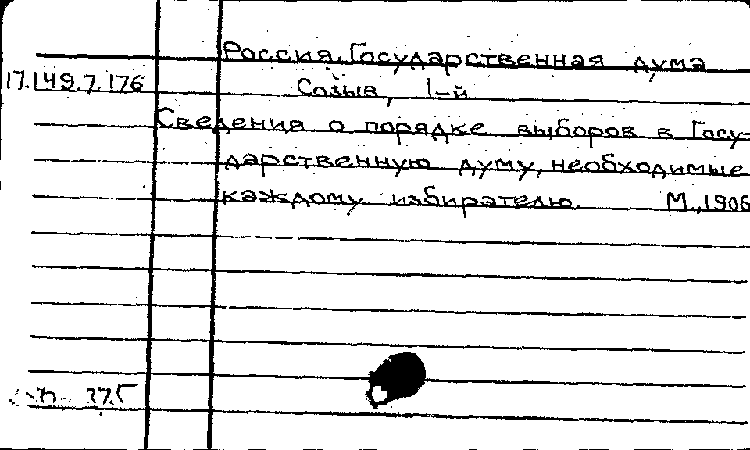 Россия. Государственная дума
17.149.7.176 Созыв, 1-й
Сведения о порядке выборов в Госу-
дарственную думу, необходимые
каждому избирателю. М., 1906
375